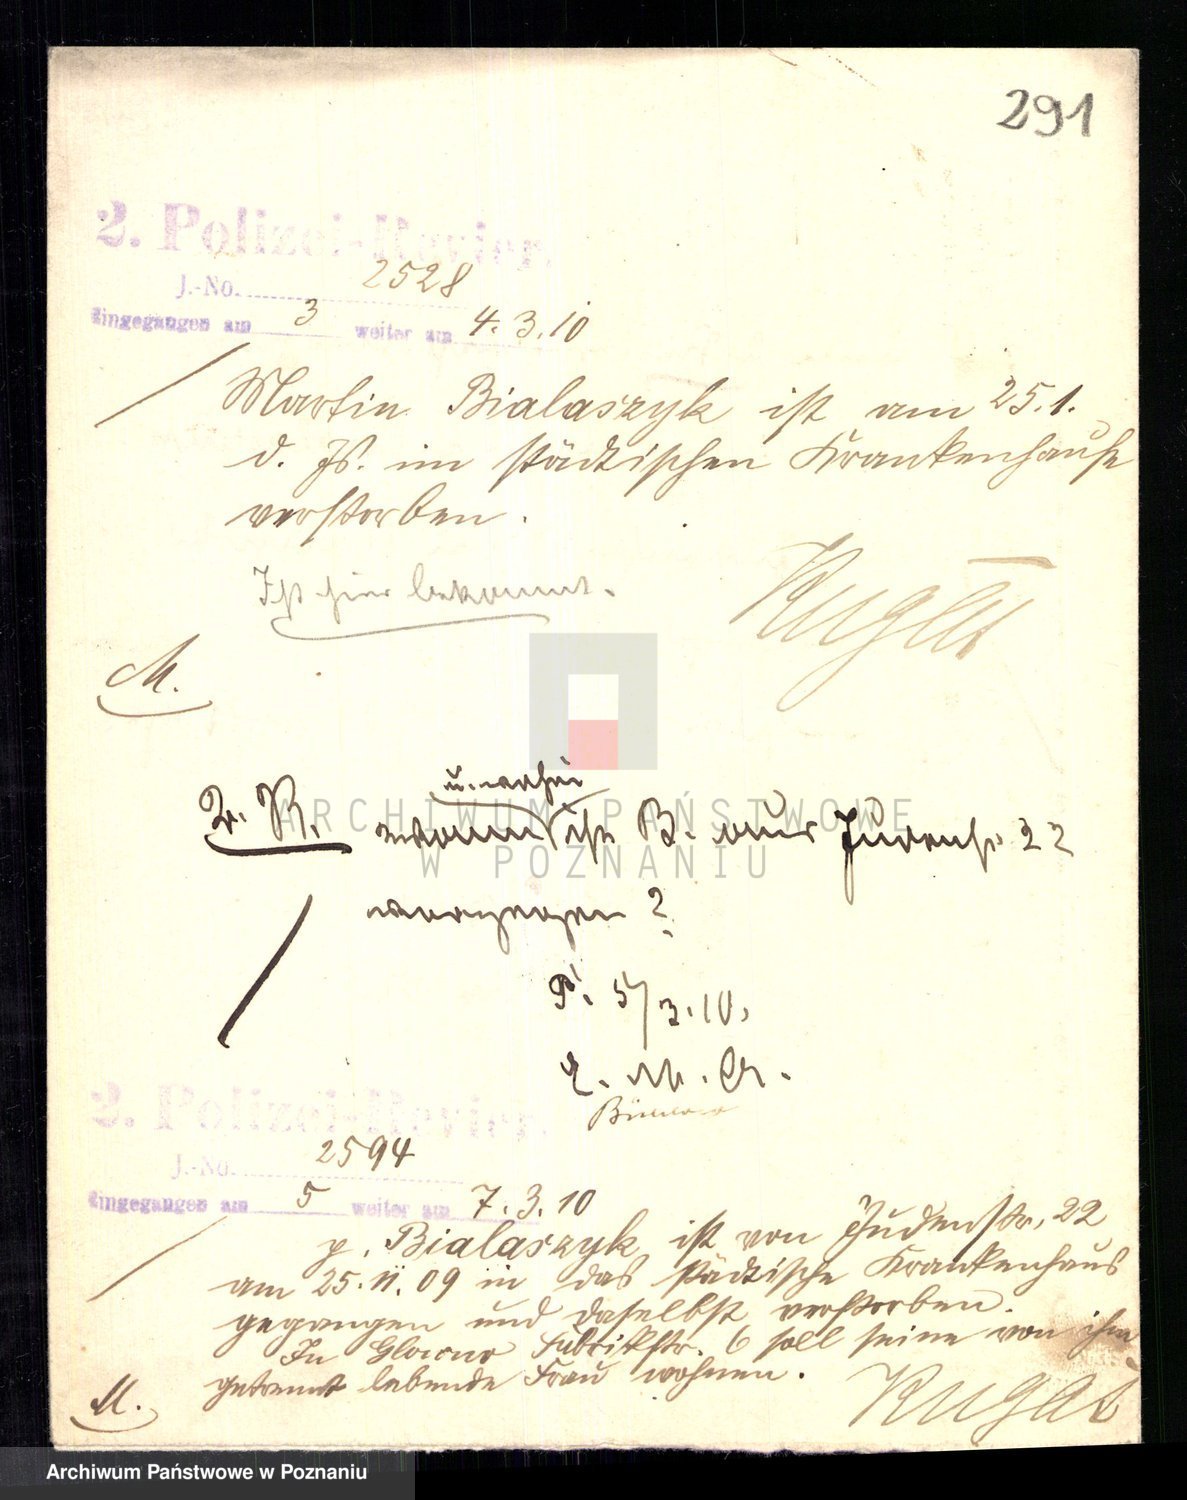 291
2. Polizei-Revier.
J.-No. 2528
Eingegangen am 3 weiter am 4.3.10
Martin Bialaszyk ist am 25.1.
d. Js. im städtischen Krankenhause
verstorben.
Ist hier bekannt.
M.
u. wohin
2. R. wann ist B. aus Judenstr 22
verzogen?
P. 5/3.10.
E. M. A.
2. Polizei-Revier.
J.-No. 2594
Eingegangen am 5 weiter am 7.3.10
p. Bialaszyk ist von Judenstr. 22
am 25.11.09 in das städtische Krankenhaus
gegangen und daselbst verstorben.
In Glowno Fabrikstr. 6 soll seine von ihm
getrennt lebende Frau wohnen.
M.
ARCHIWUM PAŃSTWOWE
W POZNANIU
Archiwum Państwowe w Poznaniu